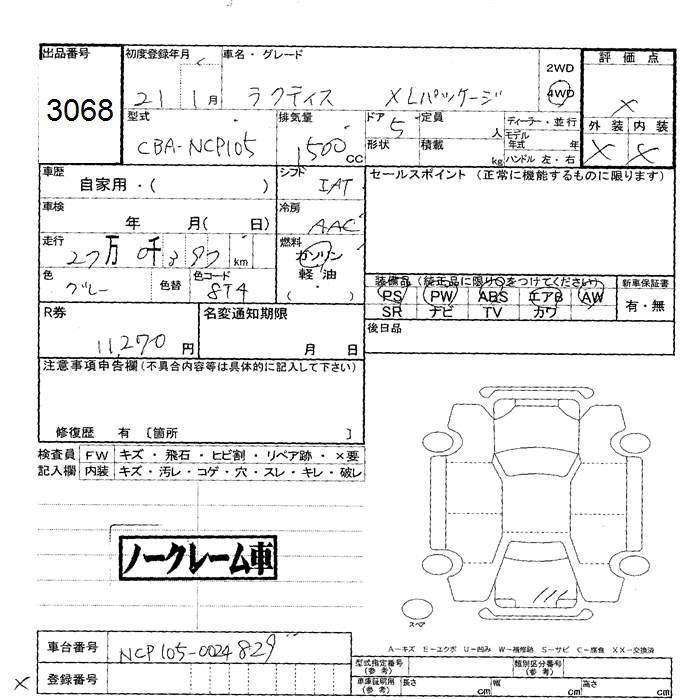 出品番号 3068
初度登録年月 21 1月
車名・グレード ラクティス XLパッケージ
2WD
4WD
評価点 X
外装 内装
X X
型式 CBA-NCP105
排気量 1500 CC
ドア 5 定員 人
形状 積載 kg
ディーラー・並行
モデル年式 年
ハンドル 左・右
車歴 自家用・( )
シフト IAT
セールスポイント (正常に機能するものに限ります)
車検 年 月( 日)
冷房 AAC
走行 27万0千397km
燃料 ガソリン
軽油
・
( )
色 グレー 色替 色コード 8T4
装備品 (純正品に限り○をつけてください)
PS PW ABS エアB AW
SR ナビ TV カワ
新車保証書
有・無
R券 11,270円
名変通知期限 月 日
後日品
注意事項申告欄 (不具合内容等は具体的に記入して下さい)
修復歴 有 〔箇所 〕
検査員 FW キズ・飛石・ヒビ割・リペア跡・×要
記入欄 内装 キズ・汚レ・コゲ・穴・スレ・キレ・破レ
ノークレーム車
スペア
A−キズ E−エクボ U−凹み W−補修跡 S−サビ C−腐食 XX−交換済
車台番号 NCP105-0024829
X 登録番号
型式指定番号(参考) 類別区分番号(参考)
車庫証明用(参考) 長さ cm 幅 cm 高さ cm